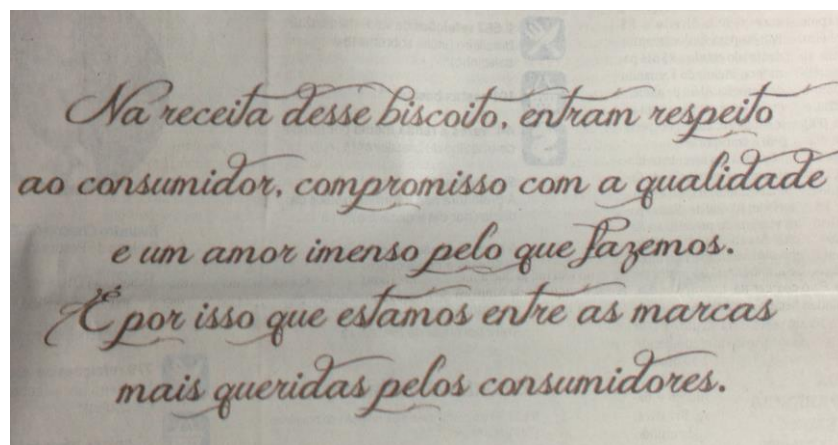 Na receita desse biscoito, entram respeito
ao consumidor, compromisso com a qualidade
e um amor imenso pelo que fazemos.
É por isso que estamos entre as marcas
mais queridas pelos consumidores.